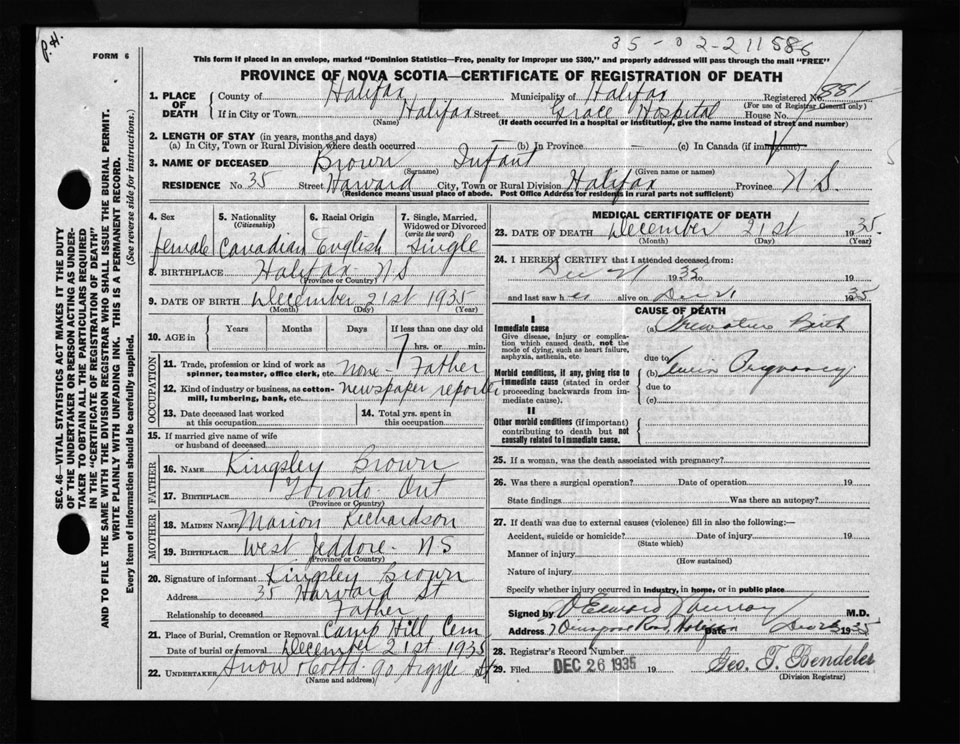 P.H.
35-02-211586
FORM 6
This form if placed in an envelope, marked "Dominion Statistics—Free, penalty for improper use $300," and properly addressed will pass through the mail "FREE"
PROVINCE OF NOVA SCOTIA—CERTIFICATE OF REGISTRATION OF DEATH
1. PLACE OF DEATH
County of Halifax Municipality of Halifax Registered No. 881
(For use of Registrar General only)
If in City or Town Halifax Street Grace Hospital House No.
(Name) (If death occurred in a hospital or institution, give the name instead of street and number)
2. LENGTH OF STAY (in years, months and days)
(a) In City, Town or Rural Division where death occurred — (b) In Province — (c) In Canada (if immigrant)
3. NAME OF DECEASED Brown Infant
(Surname) (Given name or names)
RESIDENCE No. 35 Street Harvard City, Town or Rural Division Halifax Province N.S.
(Residence means usual place of abode. Post Office Address for residents in rural parts not sufficient)
4. Sex female
5. Nationality (Citizenship) Canadian
6. Racial Origin English
7. Single, Married, Widowed or Divorced (write the word) Single
8. BIRTHPLACE Halifax NS
(Province or Country)
9. DATE OF BIRTH December 21st 1935
(Month) (Day) (Year)
10. AGE in Years Months Days If less than one day old
7 hrs. or min.
OCCUPATION
11. Trade, profession or kind of work as spinner, teamster, office clerk, etc. None - Father
12. Kind of industry or business, as cotton-mill, lumbering, bank, etc. newspaper reporter
13. Date deceased last worked at this occupation
14. Total yrs. spent in this occupation
15. If married give name of wife or husband of deceased
FATHER
16. NAME Kingsley Brown
17. BIRTHPLACE Toronto Ont
(Province or Country)
MOTHER
18. MAIDEN NAME Marion Richardson
19. BIRTHPLACE West Jeddore - NS
(Province or Country)
20. Signature of informant Kingsley Brown
Address 35 Harvard St
Relationship to deceased Father
21. Place of Burial, Cremation or Removal Camp Hill Cem
Date of burial or removal December 21st 1935
22. UNDERTAKER Snow & Co Ltd 90 Argyle St
(Name and address)
MEDICAL CERTIFICATE OF DEATH
23. DATE OF DEATH December 21st 1935.
(Month) (Day) (Year)
24. I HEREBY CERTIFY that I attended deceased from:
Dec 21 1935 19
and last saw her alive on Dec 21 1935
CAUSE OF DEATH
I
Immediate cause
Give disease, injury or complication which caused death, not the mode of dying, such as heart failure, asphyxia, asthenia, etc.
(a) Premature Birth
due to
Morbid conditions, if any, giving rise to immediate cause (stated in order proceeding backwards from immediate cause).
(b) Pregnancy
due to
(c)
II
Other morbid conditions (if important) contributing to death but not causally related to immediate cause.
25. If a woman, was the death associated with pregnancy?
26. Was there a surgical operation? Date of operation 19
State findings Was there an autopsy?
27. If death was due to external causes (violence) fill in also the following:—
Accident, suicide or homicide? Date of injury 19
(State which)
Manner of injury
(How sustained)
Nature of injury
Specify whether injury occurred in industry, in home, or in public place
Signed by M.D.
Address Halifax Date Dec 1935
28. Registrar's Record Number
29. Filed DEC 26 1935 19 Geo. T. Bendeler
(Division Registrar)
SEC. 46—VITAL STATISTICS ACT MAKES IT THE DUTY
OF THE UNDERTAKER OR PERSON ACTING AS UNDER-
TAKER TO OBTAIN ALL THE PARTICULARS REQUIRED
IN THE "CERTIFICATE OF REGISTRATION OF DEATH"
AND TO FILE THE SAME WITH THE DIVISION REGISTRAR WHO SHALL ISSUE THE BURIAL PERMIT.
WRITE PLAINLY WITH UNFADING INK. THIS IS A PERMANENT RECORD.
Every item of information should be carefully supplied. (See reverse side for instructions.)